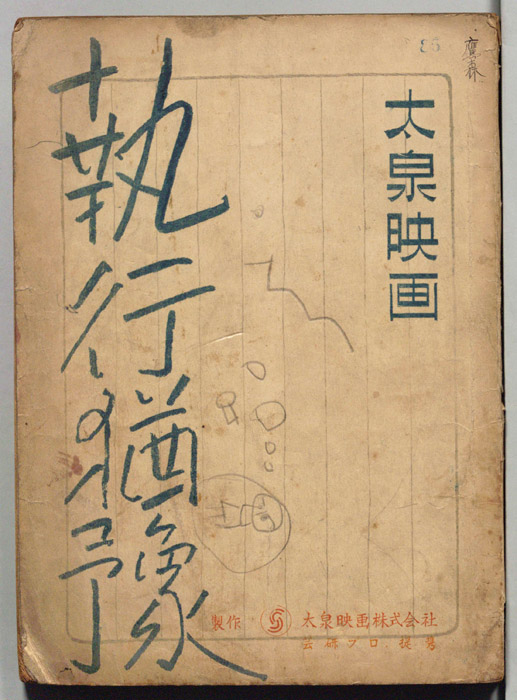 85
鷹森
太泉映画
執行猶豫
製作 太泉映画株式会社
芸研プロ 提携